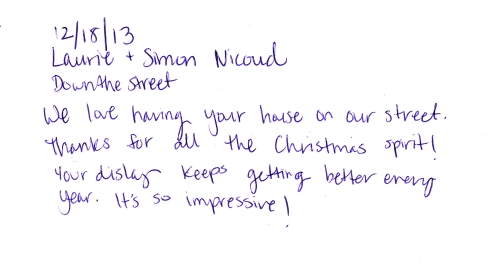 12/18/13
Laurie + Simon Nicoud
Down the street
We love having your house on our street.
Thanks for all the Christmas spirit!
Your dislay keeps getting better every
year. It's so impressive!